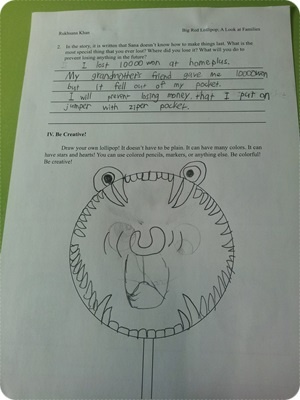 Rukhsana Khan Big Red Lollipop: A Look at Families
2. In the story, it is written that Sana doesn't know how to make things last. What is the
most special thing that you ever lost? Where did you lose it? What will you do to
prevent losing anything in the future?
I lost 10000 won at homeplus.
My grandmother's friend gave me 10000won
but it fell out of my pocket.
I will prevent losing money that I put on
jumper with ziper pocket.
IV. Be Creative!
Draw your own lollipop! It doesn't have to be plain. It can have many colors. It can
have stars and hearts! You can use colored pencils, markers, or anything else. Be colorful!
Be creative!